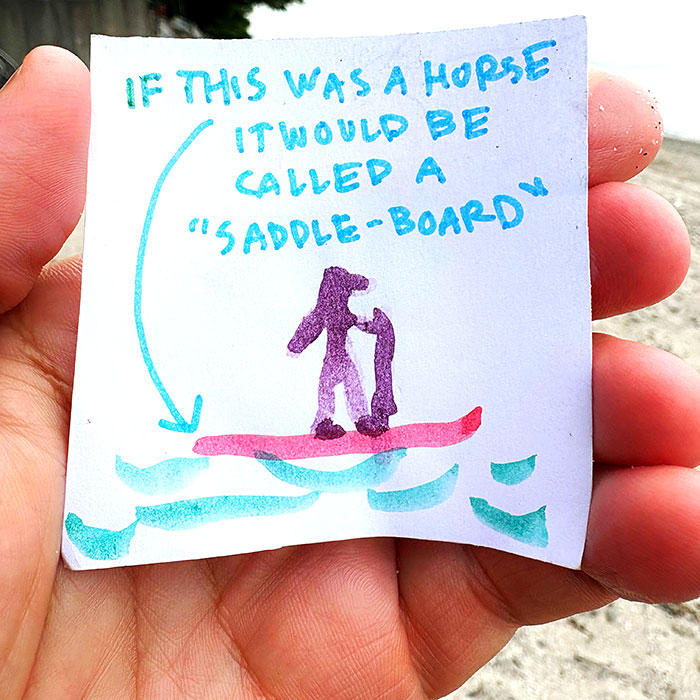 IF THIS WAS A HORSE
IT WOULD BE
CALLED A
"SADDLE-BOARD"